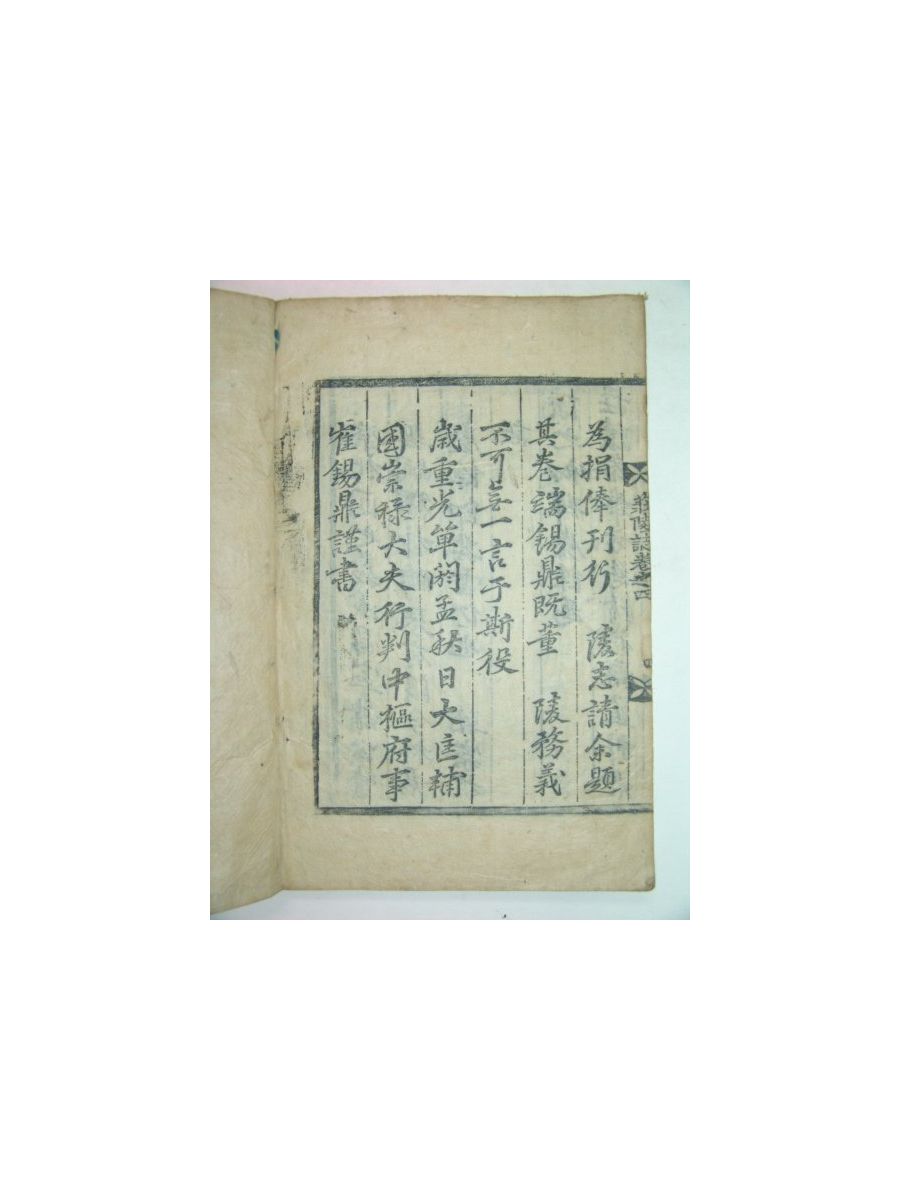 莊陵誌卷之四
為捐俸刊行　陵志請余題
其卷端錫鼎既董　陵務義
不可無一言于斯役
歲重光單閼孟秋日大匡輔
國崇祿大夫行判中樞府事
崔錫鼎謹書